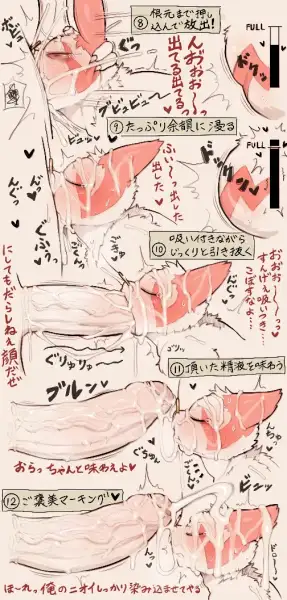 だぷっ♥
⑧根元まで押し
込んで放出!
ぐっ
んおおお〜〜っ
出てる出てるっ
ブビュビュー♥
ビュッ
ドリッ
FULL
⑨たっぷり余韻に浸る
ふぃーっ出した
出した
んぐっ
ドックン
FULL
⑩吸い付きながら
じっくりと引き抜く
おおお〜〜っっ
すんげぇ吸いつき…
こぼすなよ…
にしてもだらしねぇ顔だぜ
ぐりゅりゅ♥
ブルンッ♥
⑪頂いた精液を味わう
おらっちゃんと味わえよ♥
⑫ご褒美マーキング♥
ビュッ
ほーれっ俺のニオイしっかり染み込ませてやる